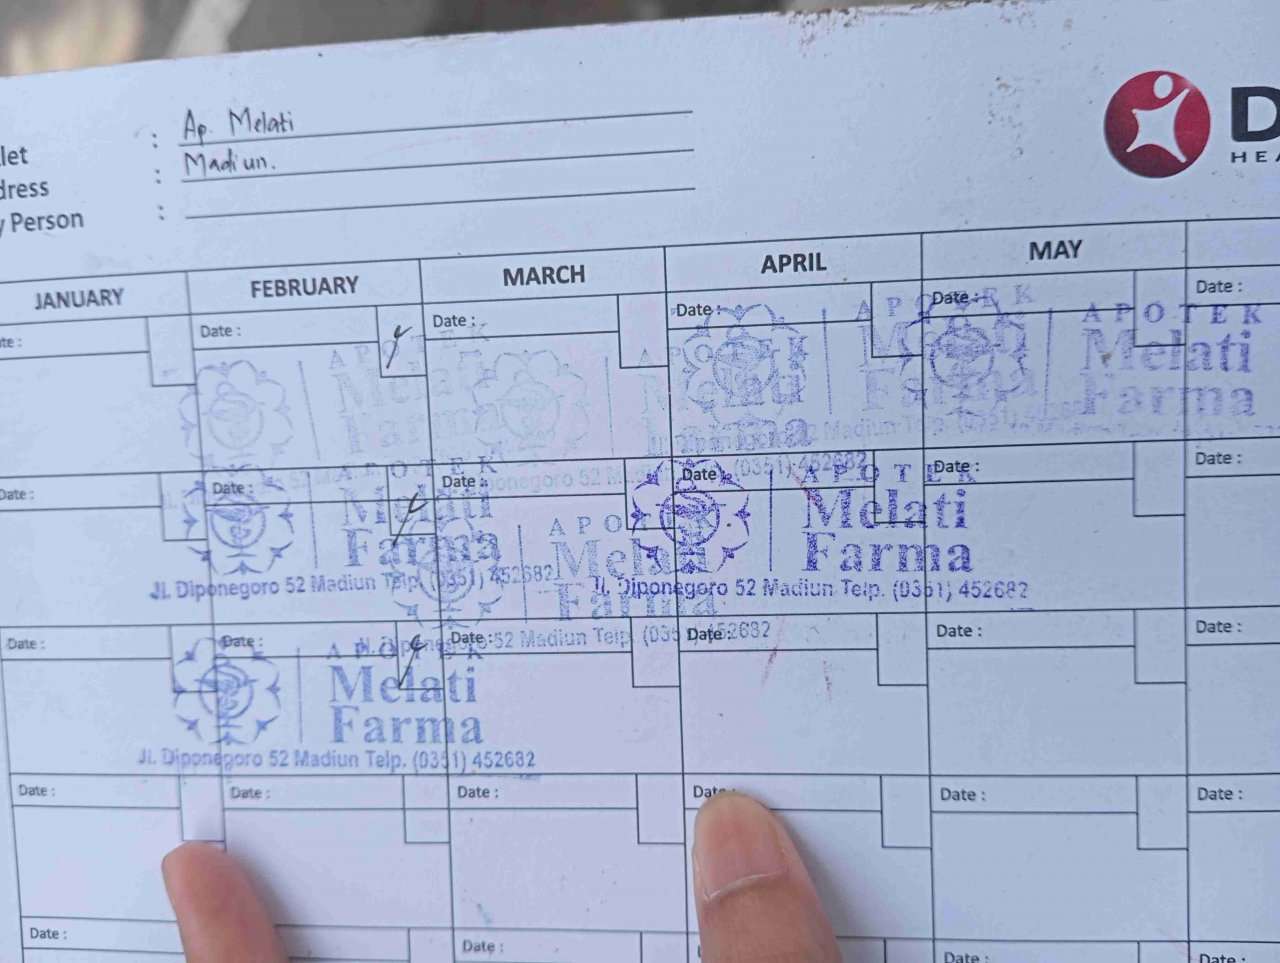 : Ap. Melati
let
: Madiun.
dress
y Person :
D
HEA
JANUARY FEBRUARY MARCH APRIL MAY
te : Date : Date : Date : Date : Date :
APOTEK APOTEK APOTEK APOTEK
Melati Melati Melati Melati
Farma Farma Farma Farma
Date : Date : Date : Date Date : Date :
APOTEK APOTEK APOTEK
Melati Melati Melati
Farma Farma Farma
Jl. Diponegoro 52 Madiun Telp. (0351) 452682 Jl. Diponegoro 52 Madiun Telp. (0351) 452682
Date : Date : Date : Date : Date : Date :
Jl. Diponegoro 52 Madiun Telp. (0351) 452682
APOTEK
Melati
Farma
Jl. Diponegoro 52 Madiun Telp. (0351) 452682
Date : Date : Date : Date : Date : Date :
Date : Date : Date : Date :